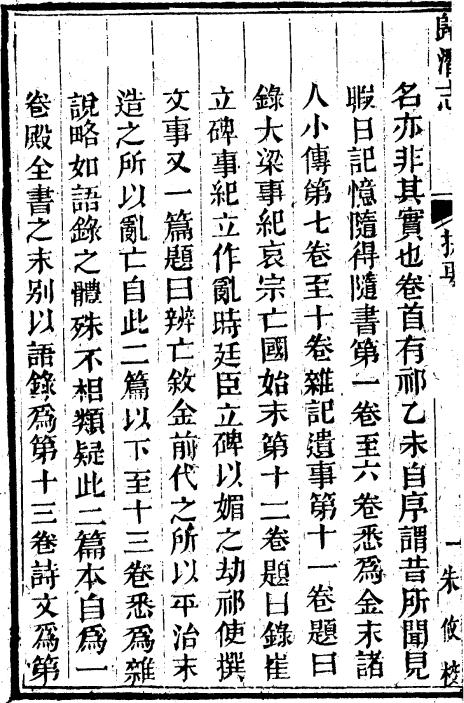 歸潛志
提要
一
朱攸校
名亦非其實也卷首有祁乙未自序謂昔所聞見
暇日記憶隨得隨書第一卷至六卷悉爲金末諸
人小傳第七卷至十卷雜記遺事第十一卷題曰
錄大梁事紀哀宗亡國始末第十二卷題曰錄崔
立碑事紀立作亂時廷臣立碑以媚之劫祁使撰
文事又一篇題曰辨亡敘金前代之所以平治末
造之所以亂亡自此二篇以下至十三卷悉爲雜
說略如語錄之體殊不相類疑此二篇本自爲一
卷殿全書之末別以語錄爲第十三卷詩文爲第